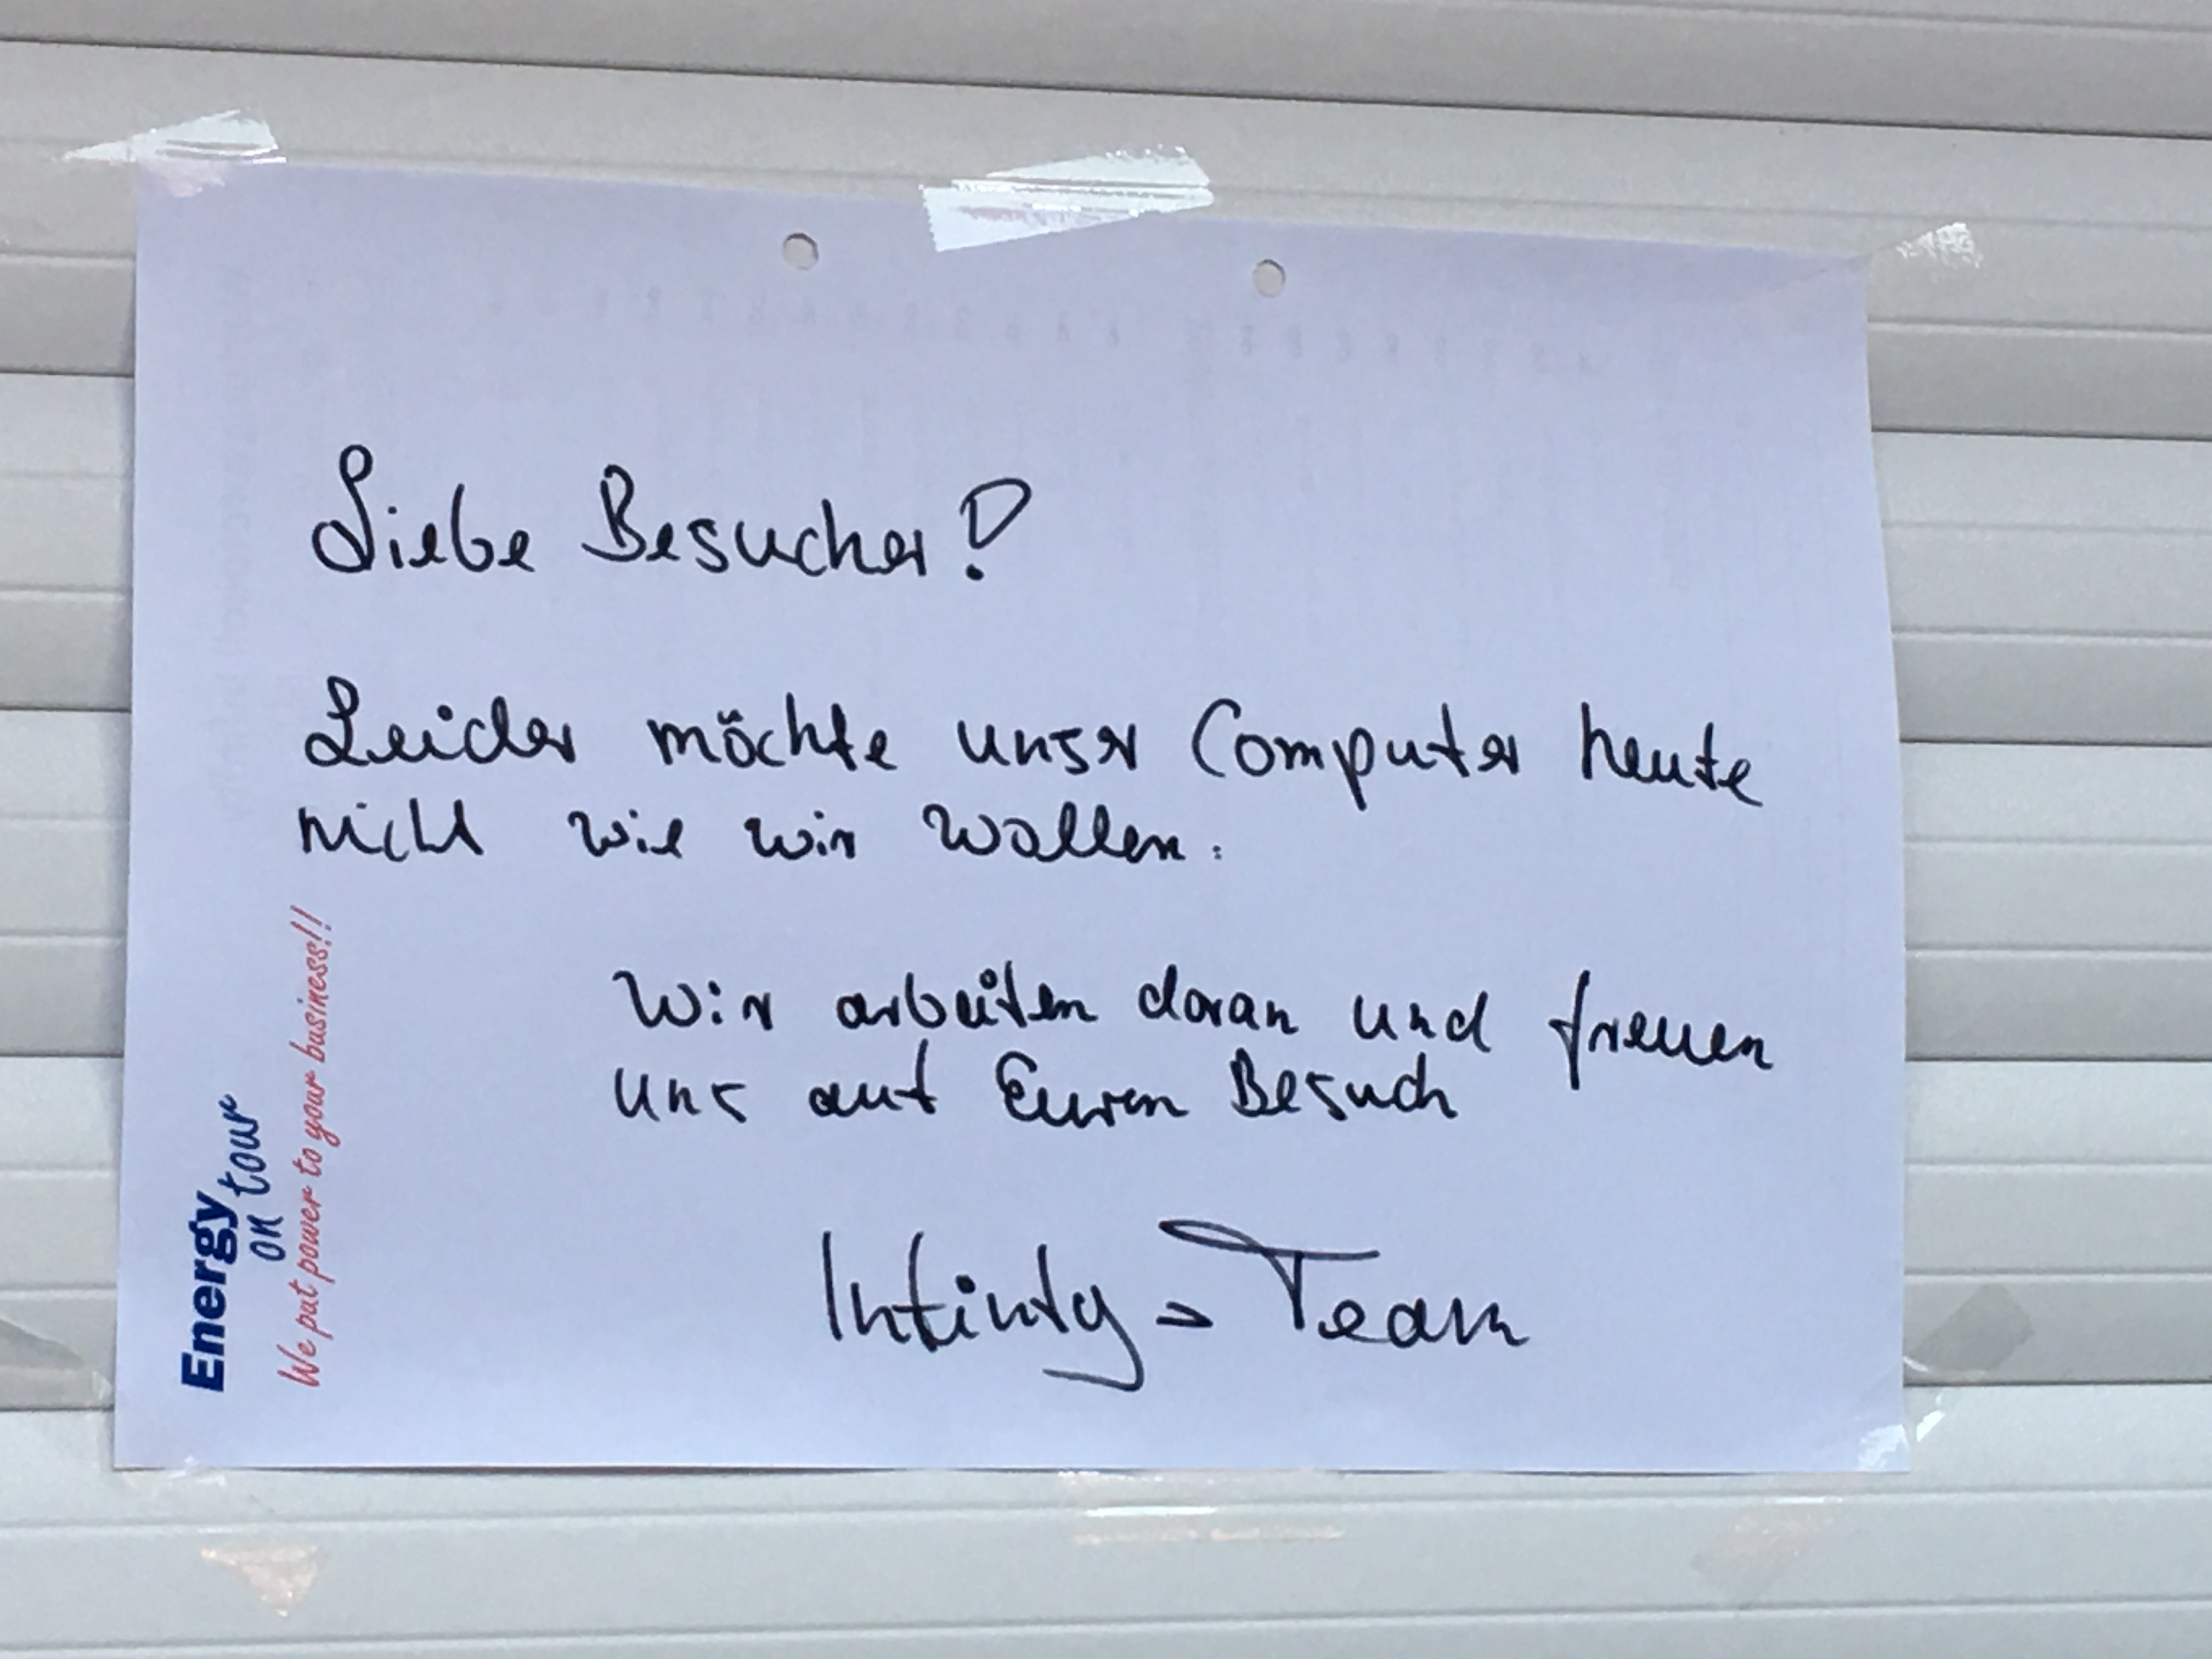 Liebe Besucher!
Leider möchte unser Computer heute
nicht wie wir wollen.
Wir arbeiten daran und freuen
uns auf Euren Besuch
Infinty-Team
Energy
on tour
We put power to your business!!